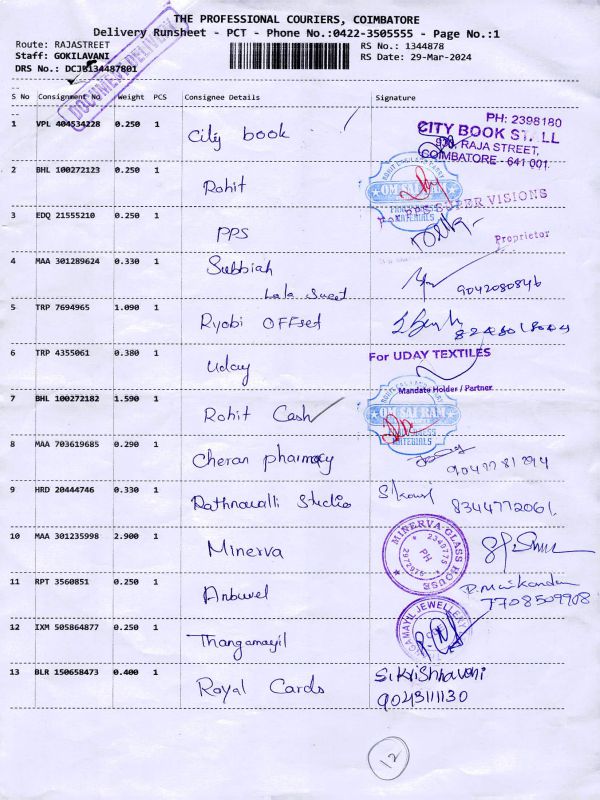 THE PROFESSIONAL COURIERS, COIMBATORE
Delivery Runsheet - PCT - Phone No.:0422-3505555 - Page No.:1
Route: RAJASTREET RS No.: 1344878
Staff: GOKILAVANI RS Date: 29-Mar-2024
DRS No.: DCJB134487801
S No Consignment No Weight PCS Consignee Details Signature
1 VPL 404534228 0.250 1 City book
PH: 2398180
CITY BOOK ST LL
RAJA STREET,
COIMBATORE - 641 001
2 BHL 100272123 0.250 1 Rohit
OM SAI RAM
MATERIALS
3 EDQ 21555210 0.250 1 PPS
Proprietor
4 MAA 301289624 0.330 1 Subbiah
Lala Sweet 9042080846
5 TRP 7694965 1.090 1 Ryobi OFFset
6 TRP 4355061 0.380 1 Uday
For UDAY TEXTILES
Mandate Holder / Partner
7 BHL 100272182 1.590 1 Rohit Cash
OM SAI RAM
MATERIALS
8 MAA 703619685 0.290 1 Cheran pharmacy
9 HRD 20444746 0.330 1 Rathnavalli Studio
8344772061
10 MAA 301235998 2.900 1 Minerva
MINERVA GLASS HOUSE
PH
11 RPT 3560851 0.250 1 Anbuvel
7708509908
12 IXM 505864877 0.250 1 Thangamayil
13 BLR 150658473 0.400 1 Royal Cards
S. Krishnaveni
9043111130
12